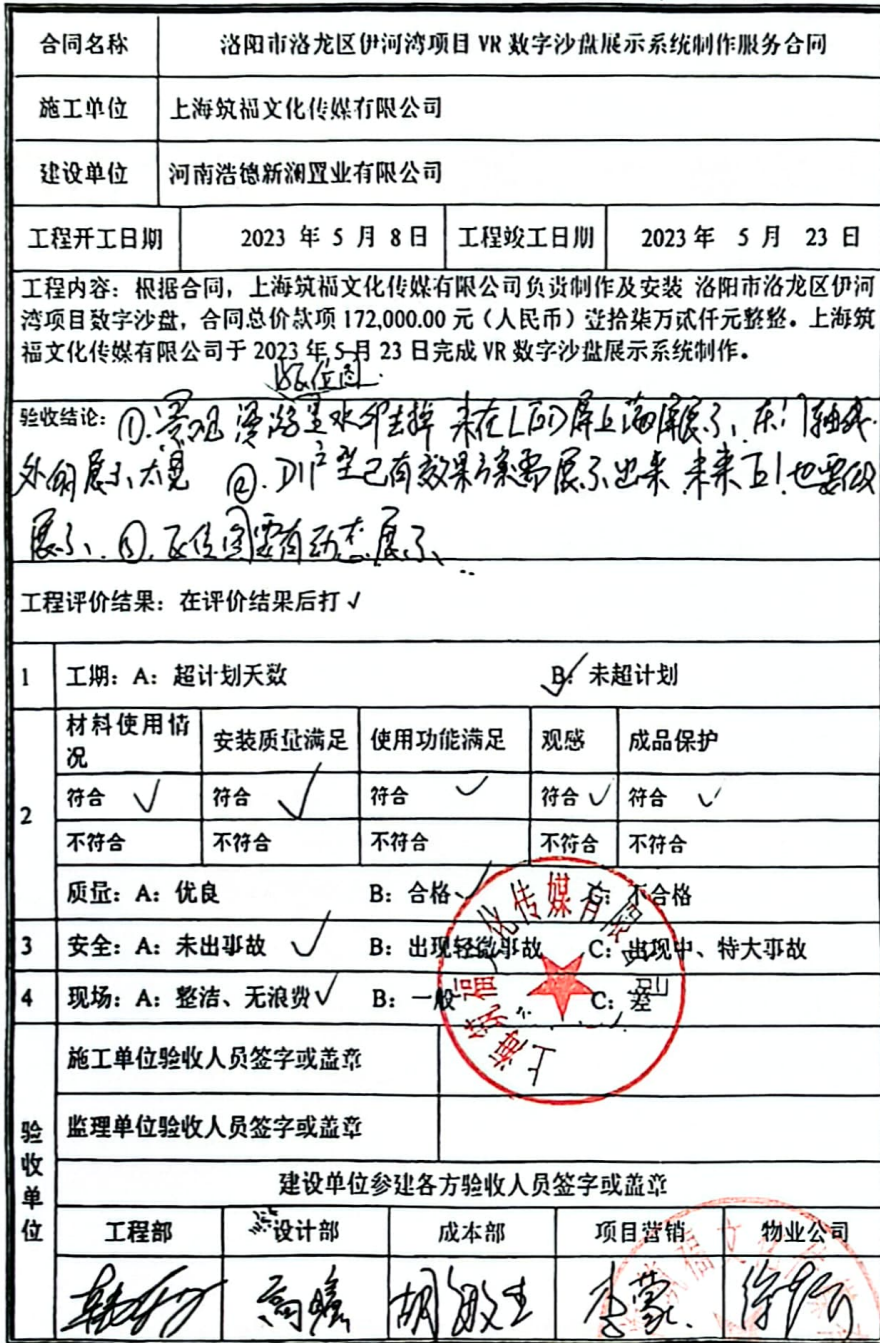 合同名称 洛阳市洛龙区伊河湾项目 VR 数字沙盘展示系统制作服务合同
施工单位 上海筑福文化传媒有限公司
建设单位 河南浩德新润置业有限公司
工程开工日期 2023 年 5 月 8 日 工程竣工日期 2023 年 5 月 23 日
工程内容：根据合同，上海筑福文化传媒有限公司负责制作及安装 洛阳市洛龙区伊河
湾项目数字沙盘，合同总价款项 172,000.00 元（人民币）壹拾柒万贰仟元整整。上海筑
福文化传媒有限公司于 2023 年 5 月 23 日完成 VR 数字沙盘展示系统制作。
区位图
验收结论：①. 水印去掉 未在LED屏上 展示、东门轴线
外的展示太 ②. D1户型已有效果方案需展示出来 未来 也要做
展示、③. 区位图要有动态展示、
工程评价结果：在评价结果后打√
1 工期：A：超计划天数 B：未超计划 √
材料使用情况 安装质量满足 使用功能满足 观感 成品保护
2 符合 √ 符合 √ 符合 √ 符合 √ 符合 √
不符合 不符合 不符合 不符合 不符合
质量：A：优良 B：合格 √ C：不合格
3 安全：A：未出事故 √ B：出现轻微事故 C：出现中、特大事故
4 现场：A：整洁、无浪费 √ B：一般 C：差
上海筑福文化传媒有限公司
验收单位
施工单位验收人员签字或盖章
监理单位验收人员签字或盖章
建设单位参建各方验收人员签字或盖章
工程部 设计部 成本部 项目营销 物业公司
高瞻 胡敏生 李蒙